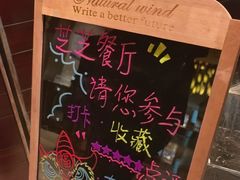 Natural wind
Write a better future
芝芝餐厅
请您参与
打卡·收藏
点评